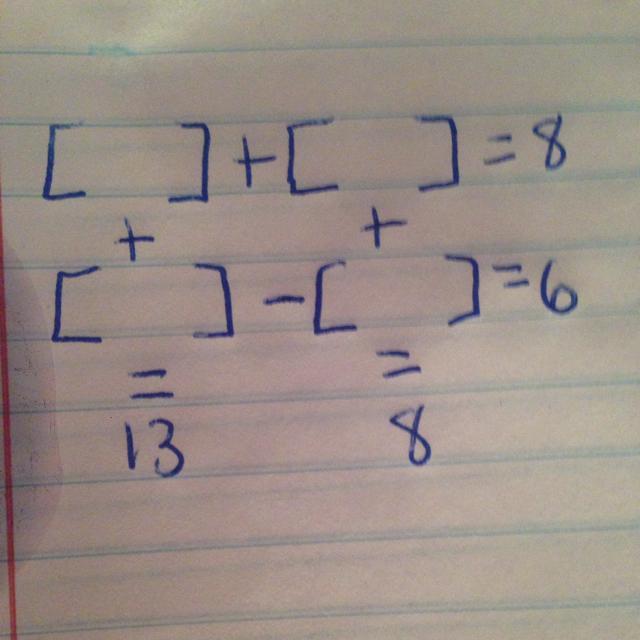 [ ] + [ ] = 8
+ +
[ ] - [ ] = 6
= =
13 8